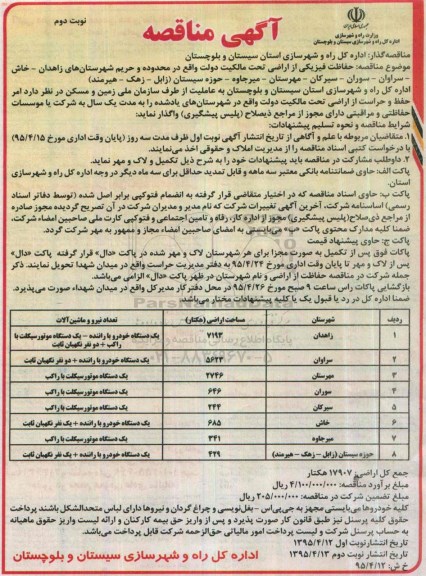 نوبت دوم
آگهی مناقصه
وزارت راه و شهرسازی
اداره کل راه و شهرسازی سیستان و بلوچستان
مناقصه‌گذار: اداره کل راه و شهرسازی استان سیستان و بلوچستان
موضوع مناقصه: حفاظت فیزیکی از اراضی تحت مالکیت دولت واقع در محدوده و حریم شهرستان‌های زاهدان - خاش
- سراوان - سوران - سیرکان - مهرستان - میرجاوه - حوزه سیستان (زابل - زهک - هیرمند)
اداره کل راه و شهرسازی استان سیستان و بلوچستان به عاملیت از طرف سازمان ملی زمین و مسکن در نظر دارد امر
حفظ و حراست از اراضی تحت مالکیت دولت واقع در شهرستان‌های یادشده را به مدت یک سال به شرکت یا موسسات
حفاظتی و مراقبتی دارای مجوز از مراجع ذیصلاح (پلیس پیشگیری) واگذار نماید:
شرایط مناقصه و نحوه تسلیم پیشنهادات:
۱. متقاضیان مربوطه با علم و آگاهی از تاریخ انتشار آگهی نوبت اول ظرف مدت سه روز (پایان وقت اداری مورخ ۹۵/۴/۱۵)
با درخواست کتبی اسناد مناقصه را از مدیریت املاک و حقوقی اخذ می‌نمایند.
۲. داوطلب مشارکت در مناقصه باید پیشنهادات خود را به شرح ذیل تکمیل و لاک و مهر نماید.
پاکت الف: حاوی ضمانتنامه بانکی معتبر سه ماهه و قابل تمدید حداقل برای سه ماه دیگر در وجه اداره کل راه و شهرسازی
استان.
پاکت ب: حاوی اسناد مناقصه که در اختیار متقاضی قرار گرفته به انضمام فتوکپی برابر اصل شده (توسط دفاتر اسناد
رسمی) اساسنامه شرکت، آخرین آگهی تغییرات شرکت که نام مدیر و مدیران شرکت در آن تصریح گردیده مجوز صادره
از مراجع ذی‌صلاح (پلیس پیشگیری) مجوز از اداره کار، رفاه و تامین اجتماعی و فتوکپی کارت ملی صاحبین امضاء شرکت،
ضمنا کلیه مدارک محتوی پاکت «ب» می‌بایستی به امضای صاحبین امضاء مجاز و ممهور به مهر شرکت گردد.
پاکت ج: حاوی پیشنهاد قیمت
پاکات فوق پس از تکمیل به صورت مجزا برای هر شهرستان لاک و مهر شده در پاکت «دال» قرار گرفته پاکت «دال»
پس از لاک و مهر تا پایان وقت اداری مورخ ۹۵/۴/۲۴ به دفتر مدیریت حراست واقع در میدان شهدا تحویل نمایند. ذکر
جمله شرکت در مناقصه حفاظت از اراضی و نام شهرستان در ظهر پاکت «دال» الزامی می‌باشد.
بازگشایی پاکات راس ساعت ۹ صبح مورخ ۹۵/۴/۲۶ در محل دفتر کار مدیرکل واقع در میدان شهداء صورت می‌پذیرد.
ضمنا اداره کل در رد یا قبول یک یا کلیه پیشنهادات مختار می‌باشد.
ردیف شهرستان مساحت اراضی (هکتار) تعداد نیرو و ماشین‌آلات
۱ زاهدان ۷۱۹۳ یک دستگاه خودرو با راننده - یک دستگاه موتورسیکلت با راکب + دو نفر نگهبان ثابت
۲ سراوان ۵۶۲۳ یک دستگاه خودرو با راننده + دو نفر نگهبان ثابت
۳ مهرستان ۲۷۴۶ یک دستگاه موتورسیکلت با راکب
۴ سوران ۶۴۶ یک دستگاه موتورسیکلت با راکب
۵ سیرکان ۲۴۴ یک دستگاه موتورسیکلت با راکب
۶ خاش ۶۸۵ یک دستگاه خودرو با راننده + یک نفر نگهبان ثابت
۷ میرجاوه ۳۴۱ یک دستگاه موتورسیکلت با راکب
۸ حوزه سیستان (زابل - زهک - هیرمند) ۴۲۹ یک دستگاه خودرو با راننده + یک نفر نگهبان ثابت
جمع کل اراضی: ۱۷۹۰۷ هکتار
مبلغ برآورد مناقصه: ۴/۱۰۰/۰۰۰/۰۰۰ ریال
مبلغ تضمین شرکت در مناقصه: ۲۰۵/۰۰۰/۰۰۰ ریال
کلیه خودروها می‌بایستی مجهز به جی‌پی‌اس - بغل‌نویسی و چراغ گردان و نیروها دارای لباس متحدالشکل باشند پرداخت
حقوق کلیه پرسنل نیز طبق قانون کار صورت پذیرد و پس از واریز حق بیمه کارکنان و ارائه لیست واریز حقوق ماهیانه
به حساب پرسنل شرکت و لیست پرداخت امور مالیاتی حق‌الزحمه شرکت قابل پرداخت می‌باشد.
تاریخ انتشار نوبت اول ۱۳۹۵/۴/۱۲
تاریخ انتشار نوبت دوم ۱۳۹۵/۴/۱۳
خ ش: ۹۵/۴/۱۳
اداره کل راه و شهرسازی سیستان و بلوچستان